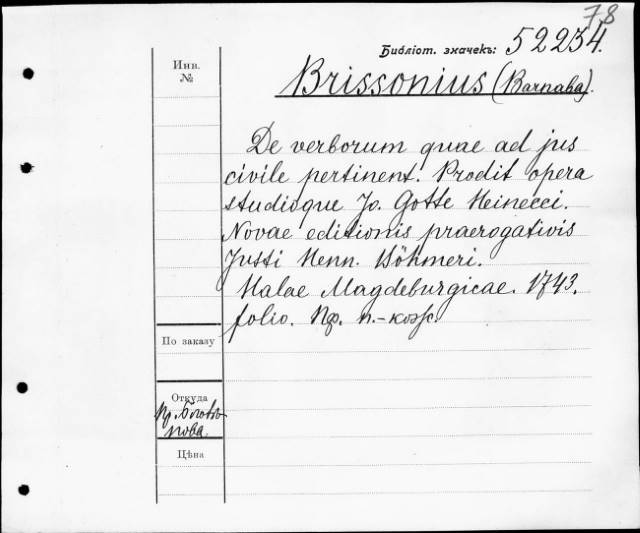 78
Библіот. значекъ: 52234.
Инв.
№
Brissonius (Barnaba).
De verborum quae ad jus
civile pertinent. Prodit opera
studioque Jo. Gotte Heinecci.
Novae editionis praerogativis
Justi Henn. Böhmeri.
Halae Magdeburgicae. 1743.
folio. Пр. п.-кож.
По заказу
Откуда
Пр.
пова
Цѣна